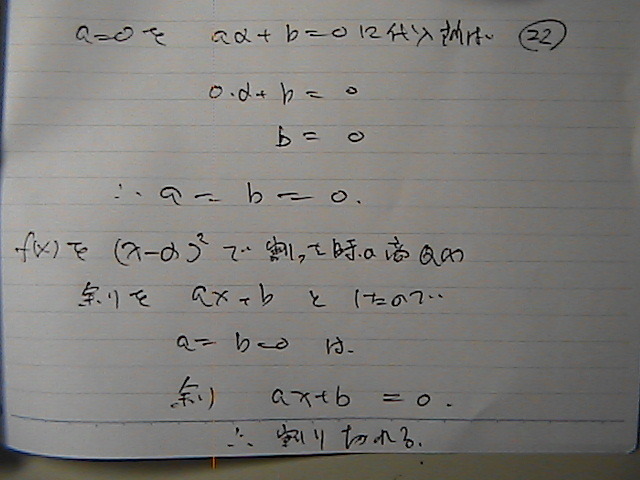 a=0を aα+b=0に代入すれば、 22
0・α+b=0
b=0
∴ a=b=0.
f(x)を (x-α)²で 割った時の商Q(x)
余りを ax+b としたので
a=b=0 は、
余り ax+b=0.
∴ 割り切れる.